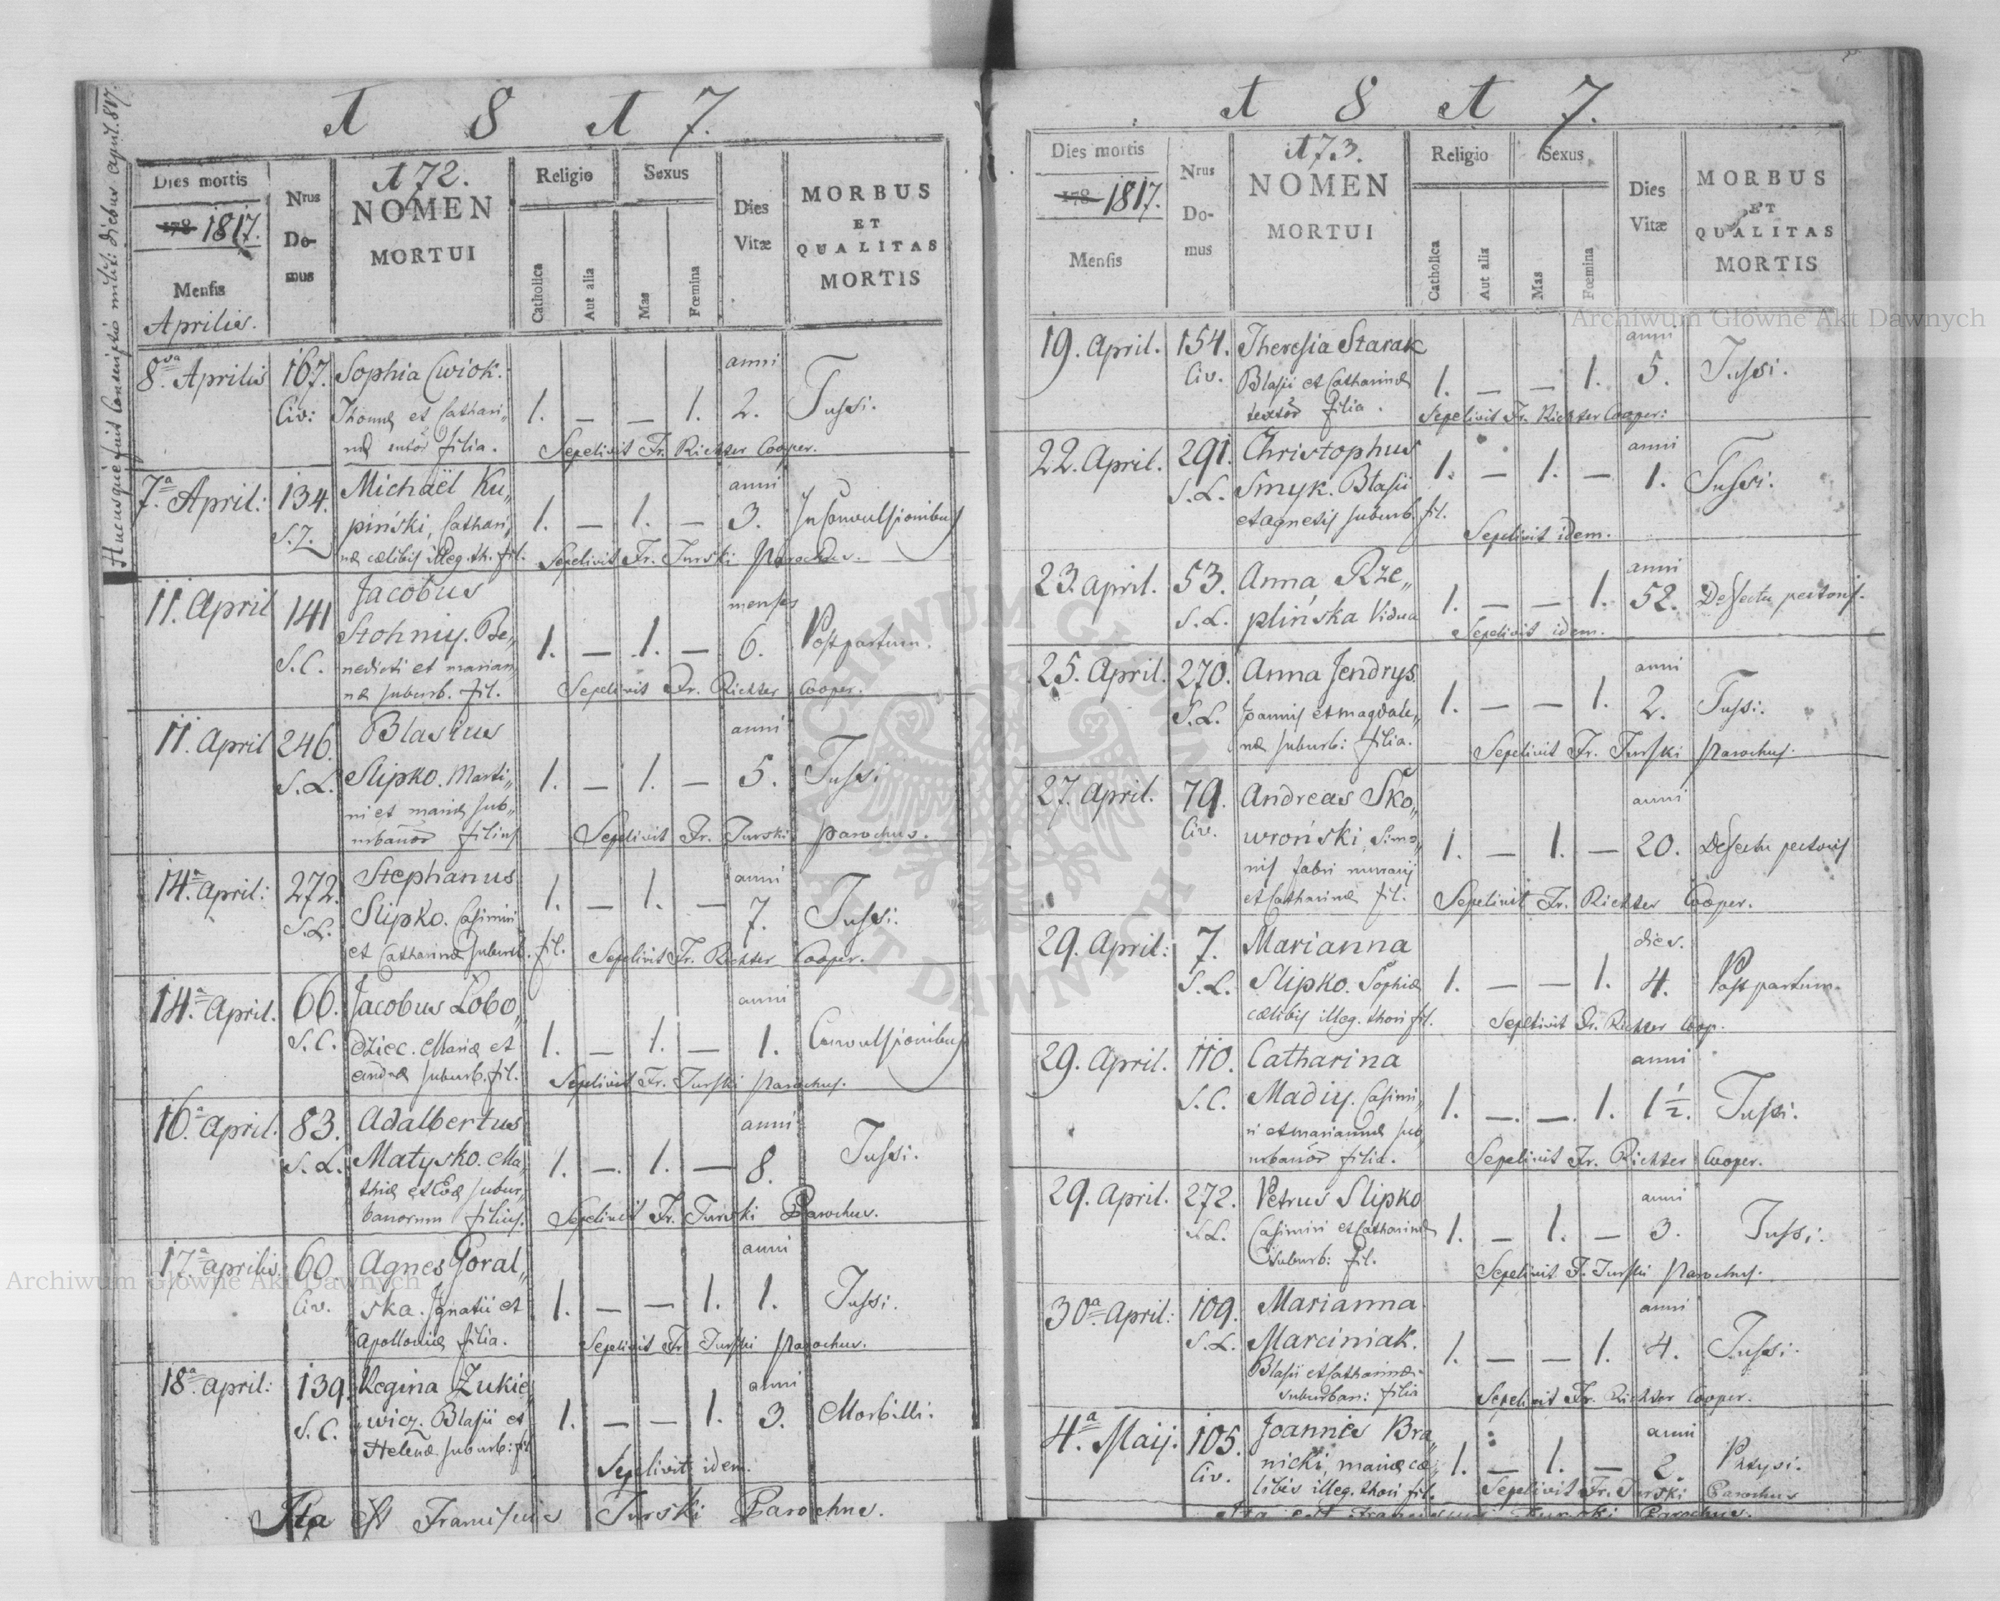 1 8 1 7.
Hucusque fuit Conscriptio milit: diebus April. 817.
172.
Dies mortis
178 1817.
Mensis
Aprilis.
Nrus
Do-
mus
NOMEN
MORTUI
Religio
Catholica
Aut alia
Sexus
Mas
Fœmina
Dies
Vitæ
MORBUS
ET
QUALITAS
MORTIS
8va Aprilis 167. Sophia Cwiok. anni
Civ: Thomæ et Cathari„ 1. — — 1. 2. Tussi.
næ filia. Sepelivit Fr. Richter Cooper.
7a April: 134. Michaël Ku„ anni
S.Z. piński, Cathari„ 1. — 1. — 3. In Convulsionibus
næ cælibis illeg. th. fil. Sepelivit Fr. Turski Parochus.
11. April 141 Jacobus menses
Stohniy. Be„ 1. — 1. — 6. Post partum.
S.C. nedicti et marian„
næ suburb. fil. Sepelivit Fr. Richter Cooper.
11. April 246. Blasius anni
S.L. Slipko. Marti„ 1. — 1. — 5. Tussi
ni et mariæ sub„
urbanor filius Sepelivit Fr. Turski parochus.
14a April: 272. Stephanus anni
S.L. Slipko. Casimiri 1. — 1. — 7. Tussi.
et Catharinæ suburb. fil. Sepelivit Fr. Richter Cooper.
14.a April. 66. Jacobus Łobo„ anni
S.C. dziec. Mariæ et 1. — 1. — 1. Convulsionibus
andreæ suburb. fil. Sepelivit Fr. Turski parochus.
16.a April. 83. Adalbertus anni
S.L. Matysko. Ma„ 1. — 1. — 8. Tussi.
thiæ et Evæ subur„
banorum filius. Sepelivit Fr. Turski Parochus.
17.a aprilis 60. Agnes Goral„ anni
Civ. ska. Ignatii et 1. — — 1. 1. Tussi.
Apolloniæ filia. Sepelivit Fr. Turski parochus.
18a April: 139. Regina Zukie„ anni
S.C. wicz. Blasii et 1. — — 1. 3. Morbilli.
Helenæ suburb: fil Sepelivit idem.
Ita est Franciscus Turski Parochus.
1 8 1 7.
173.
Dies mortis
178 1817.
Mensis
Nrus
Do-
mus
NOMEN
MORTUI
Religio
Catholica
Aut alia
Sexus
Mas
Fœmina
Dies
Vitæ
MORBUS
ET
QUALITAS
MORTIS
19. April. 154. Theresia Starak anni
Civ. Blasii et Catharinæ 1. — — 1. 5. Tussi.
textor filia. Sepelivit Fr. Richter Cooper:
22. April. 291. Christophus anni
S.L. Smyk. Blasii 1. — 1. — 1. Tussi.
et agnetis suburb. fil. Sepelivit idem.
23. April. 53. Anna Rze„ anni
S.L. plińska Vidua 1. — — 1. 52. Defectu pectoris.
Sepelivit idem.
25. April. 270. Anna Jendrys anni
S.L. Joannis et magdale„ 1. — — 1. 2. Tussi.
næ suburb: filia. Sepelivit Fr. Turski parochus.
27. April. 79. Andreas Sko„ anni
Civ. wroński, Simo„ 1. — 1. — 20. Defectu pectoris
nis fabri murarij
et Catharinæ fil. Sepelivit Fr. Richter Cooper.
29. April: 7. Marianna dies.
S.L. Slipko. Sophiæ 1. — — 1. 4. Post partum.
cælibis illeg. thori fil. Sepelivit Fr. Richter Coop.
29. April. 110. Catharina anni
S.C. Madiy. Casimi„ 1. — — 1. 1 1/2. Tussi.
ri et mariannæ sub
urbanor filia. Sepelivit Fr. Richter Cooper.
29. April. 272. Petrus Slipko anni
S.L. Casimiri et Catharinæ 1. — 1. — 3. Tussi.
suburb: fil. Sepelivit F. Turski parochus.
30a April: 109. Marianna anni
S.L. Marciniak. 1. — — 1. 4. Tussi.
Blasii et Catharinæ
suburban: filia Sepelivit Fr. Richter Cooper.
4.a Maij. 105. Joannes Bra„ anni
Civ. nicki, mariæ cæ„ 1. — 1. — 2. Phtysi.
libis illeg. thori fil. Sepelivit Fr. Turski Parochus
Ita est Franciscus Turski Parochus.
Archiwum Główne Akt Dawnych
Archiwum Główne Akt Dawnych
ARCHIWUM GŁÓWNE AKT DAWNYCH